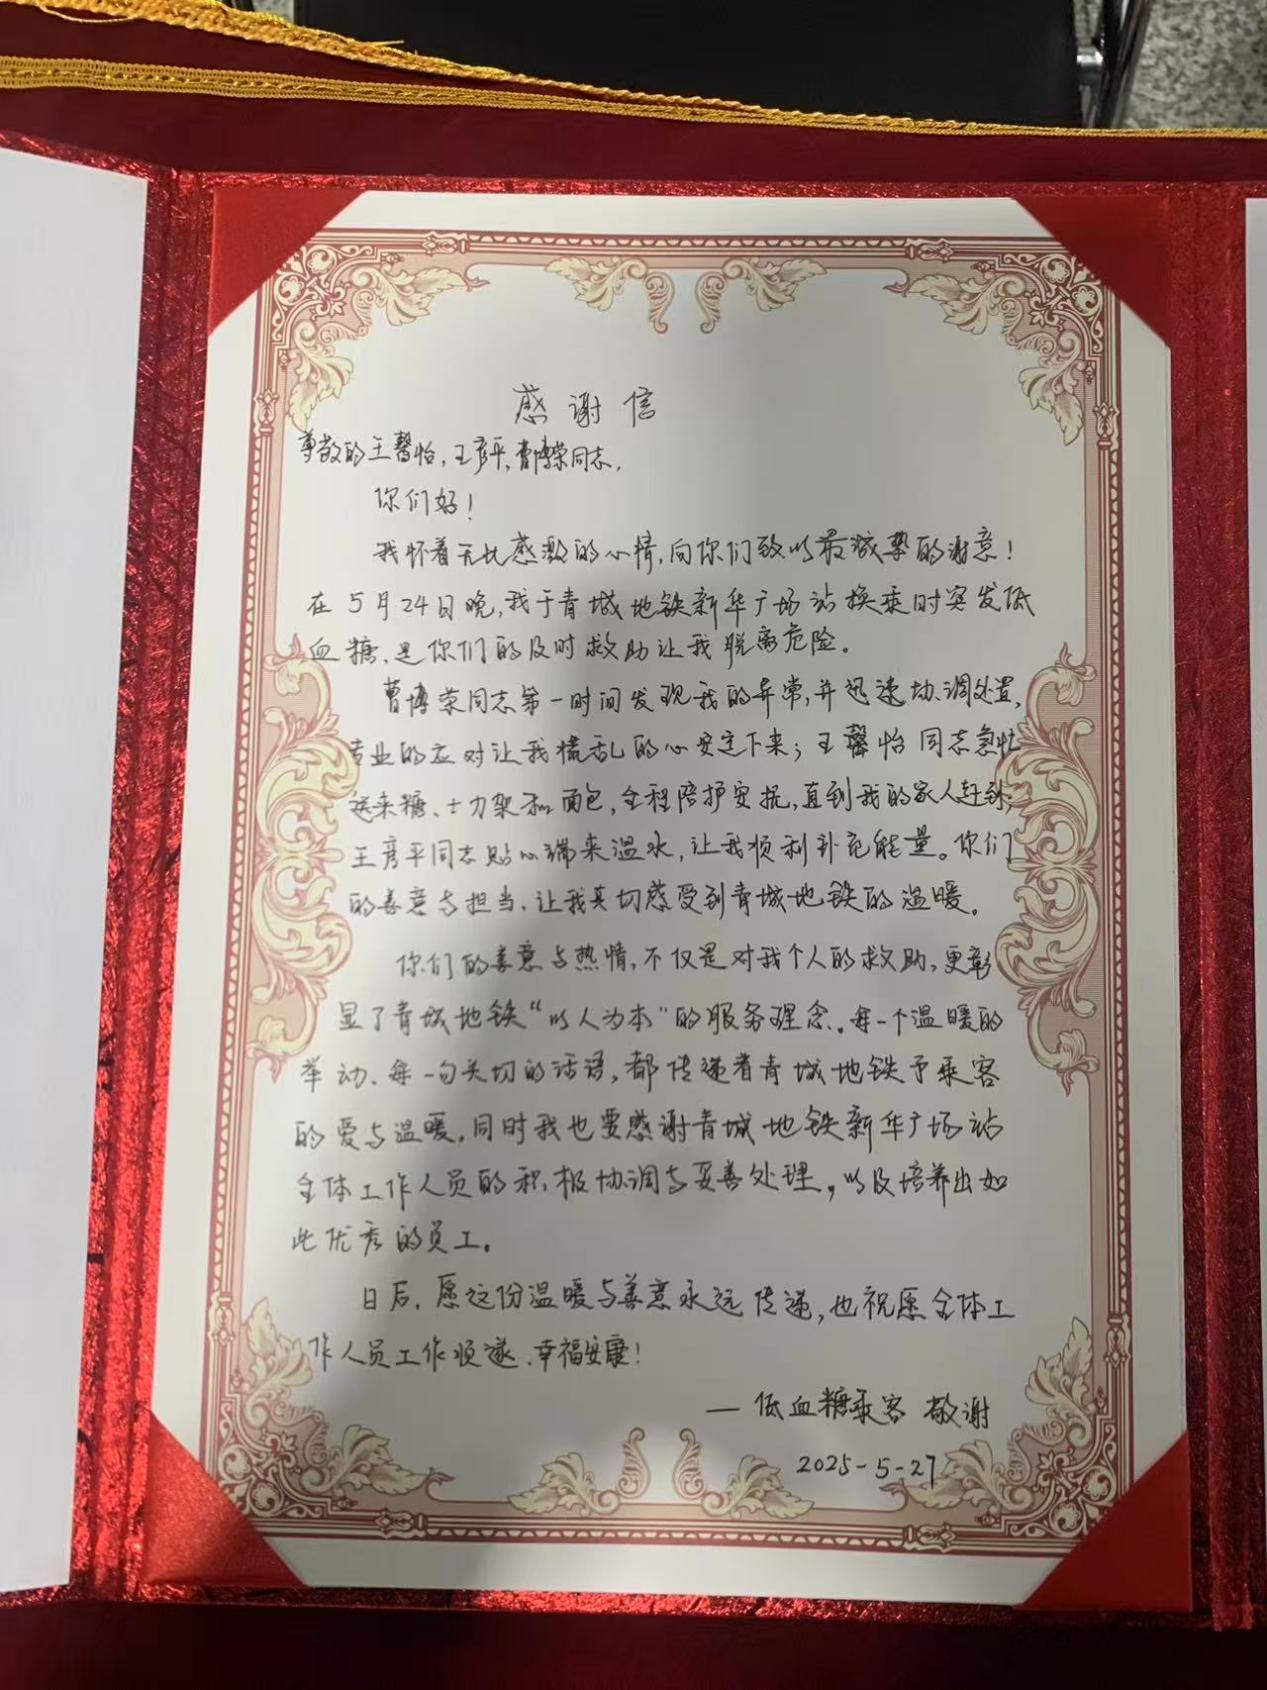 感谢信
尊敬的王馨怡、王彦平、曹博荣同志,
你们好!
我怀着无比感激的心情,向你们致以最诚挚的谢意!
在5月24日晚,我于青城地铁新华广场站换乘时突发低
血糖,是你们的及时救助让我脱离危险。
曹博荣同志第一时间发现我的异常,并迅速协调处置,
专业的应对让我慌乱的心安定下来;王馨怡同志急忙
送来糖、士力架和面包,全程陪护安抚,直到我的家人赶到;
王彦平同志贴心端来温水,让我顺利补充能量。你们
的善意与担当,让我真切感受到青城地铁的温暖。
你们的善意与热情,不仅是对我个人的救助,更彰
显了青城地铁“以人为本”的服务理念。每一个温暖的
举动、每一句关切的话语,都传递着青城地铁予乘客
的爱与温暖。同时我也要感谢青城地铁新华广场站
全体工作人员的积极协调与妥善处理,以及培养出如
此优秀的员工。
日后,愿这份温暖与善意永远传递,也祝愿全体工
作人员工作顺遂、幸福安康!
—低血糖乘客 敬谢
2025-5-27